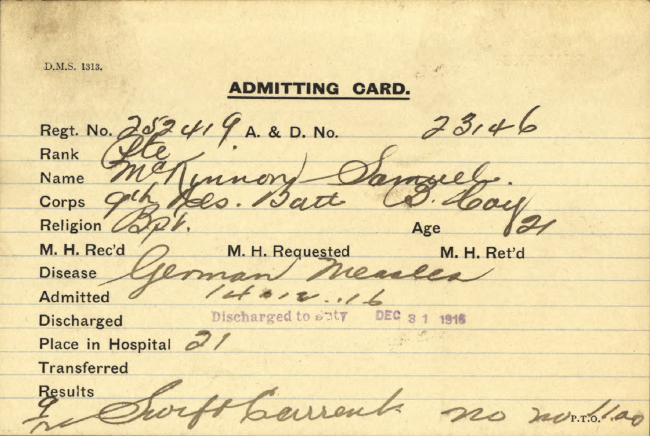 D.M.S. 1313.
ADMITTING CARD.
Regt. No. 252419 A. & D. No. 23146
Rank Pte
Name McKinnon Samuel.
Corps 9th Res. Batt B. Coy
Religion Bpt. Age 21
M. H. Rec'd M. H. Requested M. H. Ret'd
Disease German Measles
Admitted 14.12.16
Discharged Discharged to Duty DEC 31 1916
Place in Hospital 21
Transferred
Results
Swift Current no no 11.00
P.T.O.